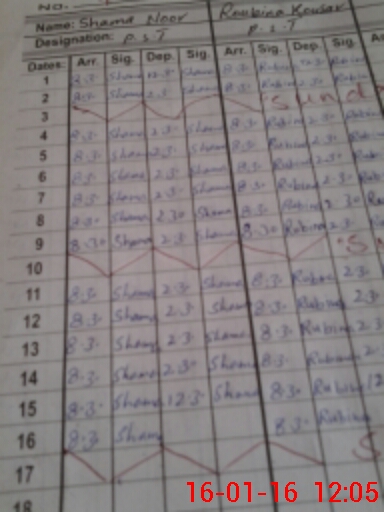 NO.
Name: Shama Noor Roubina Kousar
Designation: P.S.T P.S.T
Dates: Arr. Sig. Dep. Sig. Arr. Sig. Dep. Sig.
1 8.3 Shama 12.3 Shama 8.3 Rubina 12.3 Rubina
2 8.3 Shama 2.3 Shama 8.3 Rubina 2.3
3 Sund
4 8.3 Shama 2.3 Shama 8.3 Rubina 2.3
5 8.3 Shama 2.3 Shama 8.3 Rubina 2.3
6 8.3 Shama 2.3 Shama 8.3 Rubina 2.3
7 8.3 Shama 2.3 Shama 8.3 Rubina 2.3
8 Shama 2.30 Shama 8.3 Rubina 2.30
9 8.30 Shama 2.3 Shama 8.30 Rubina 2.3
10 S
11 8.3 Shama 2.3 Shama 8.3 Rubina 2.3
12 8.3 Shama 2.3 Sham 8.3 Rubina 2.3
13 8.3 Sham 2.3 Shama 8.3 Rubina 2.3
14 8.3 Shama 2.3 Shama 8.3 Rubina 2.3
15 8.3 Shama 12.3 Shama 8.3 Rubina 12
16 8.3 Sham 8.3 Rubina
17 S
18
16-01-16 12:05